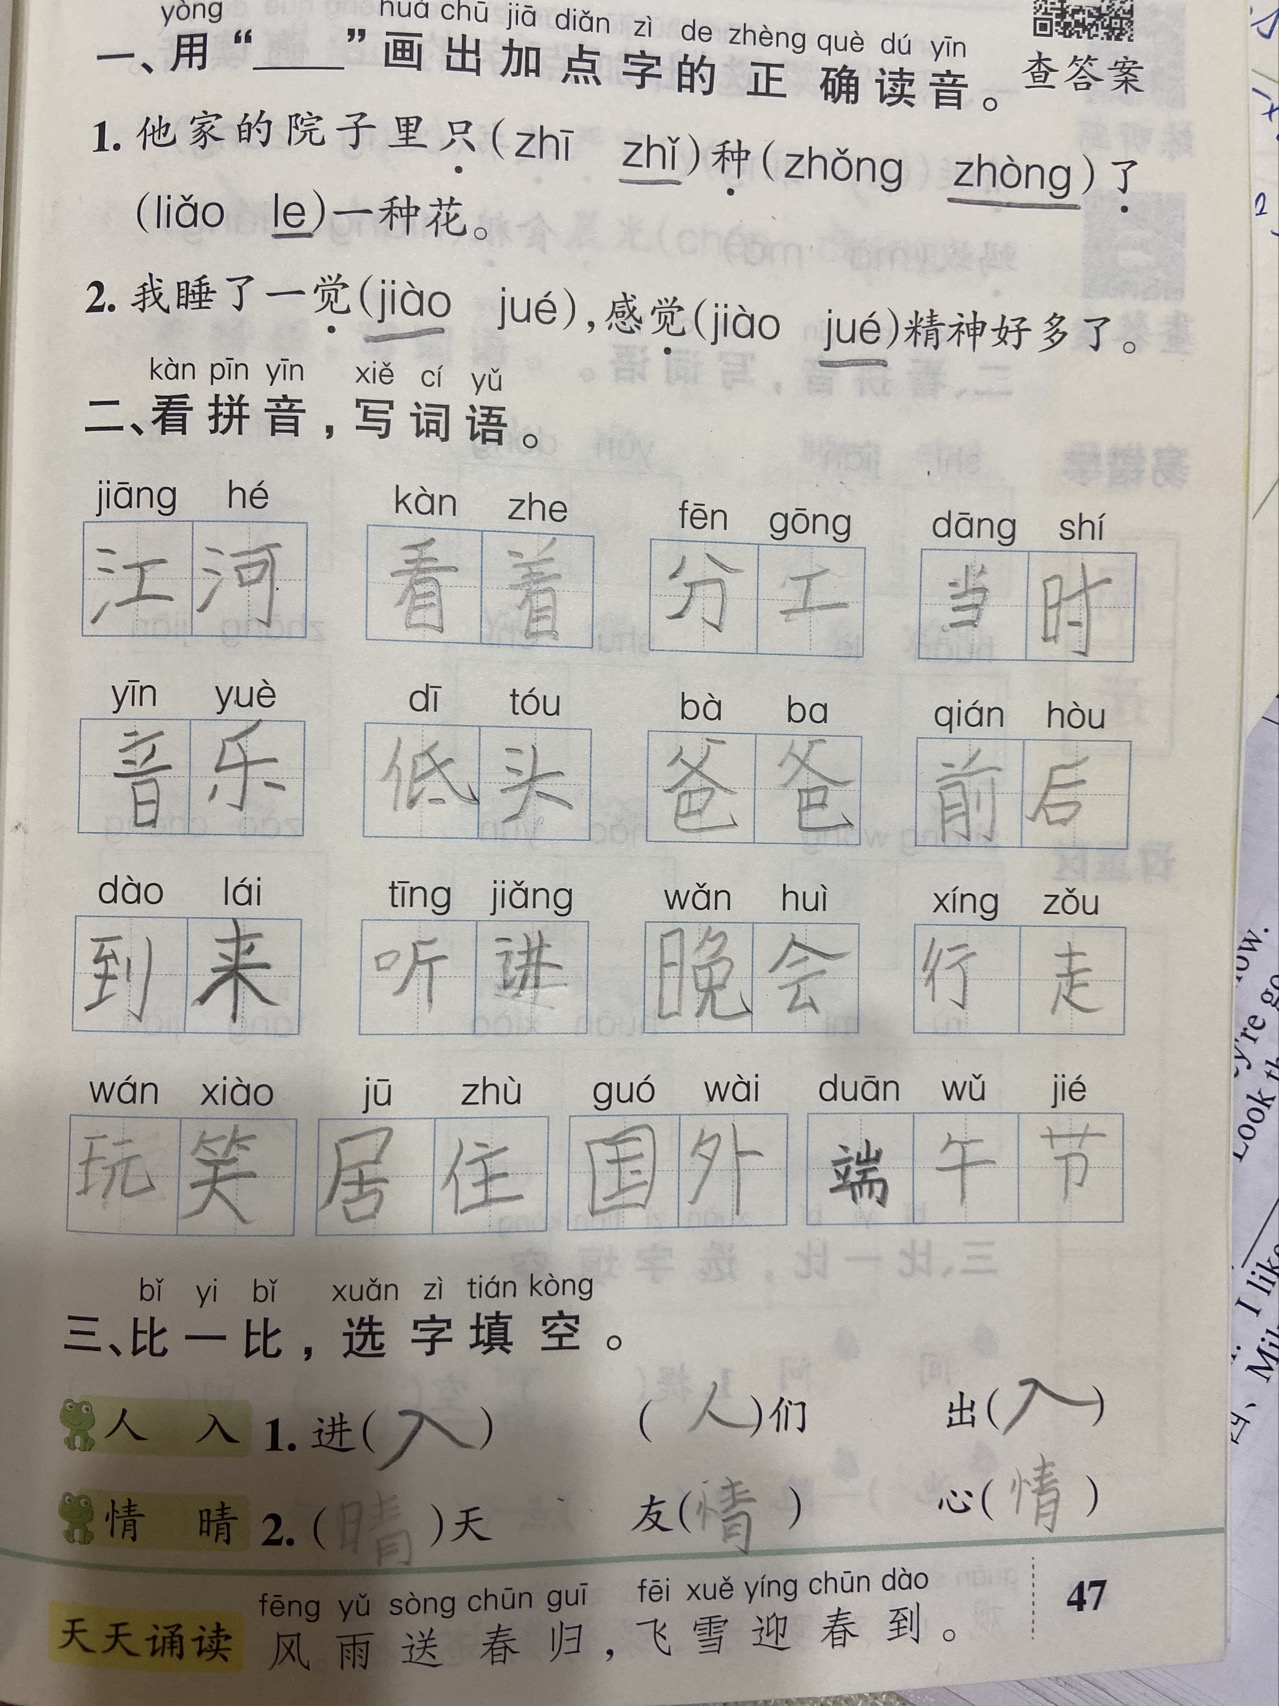 yòng huà chū jiā diǎn zì de zhèng què dú yīn
一、用“____”画出加点字的正确读音。 查答案
1. 他家的院子里只(zhī zhǐ)种(zhǒng zhòng)了
(liǎo le)一种花。
2. 我睡了一觉(jiào jué),感觉(jiào jué)精神好多了。
kàn pīn yīn xiě cí yǔ
二、看拼音,写词语。
jiāng hé kàn zhe fēn gōng dāng shí
江河 看着 分工 当时
yīn yuè dī tóu bà ba qián hòu
音乐 低头 爸爸 前后
dào lái tīng jiǎng wǎn huì xíng zǒu
到来 听讲 晚会 行走
wán xiào jū zhù guó wài duān wǔ jié
玩笑 居住 国外 端午节
bǐ yi bǐ xuǎn zì tián kòng
三、比一比,选字填空。
人 入 1. 进(入) (人)们 出(入)
情 晴 2. (晴)天 友(情) 心(情)
fēng yǔ sòng chūn guī fēi xuě yíng chūn dào
天天诵读 风雨送春归,飞雪迎春到。
47